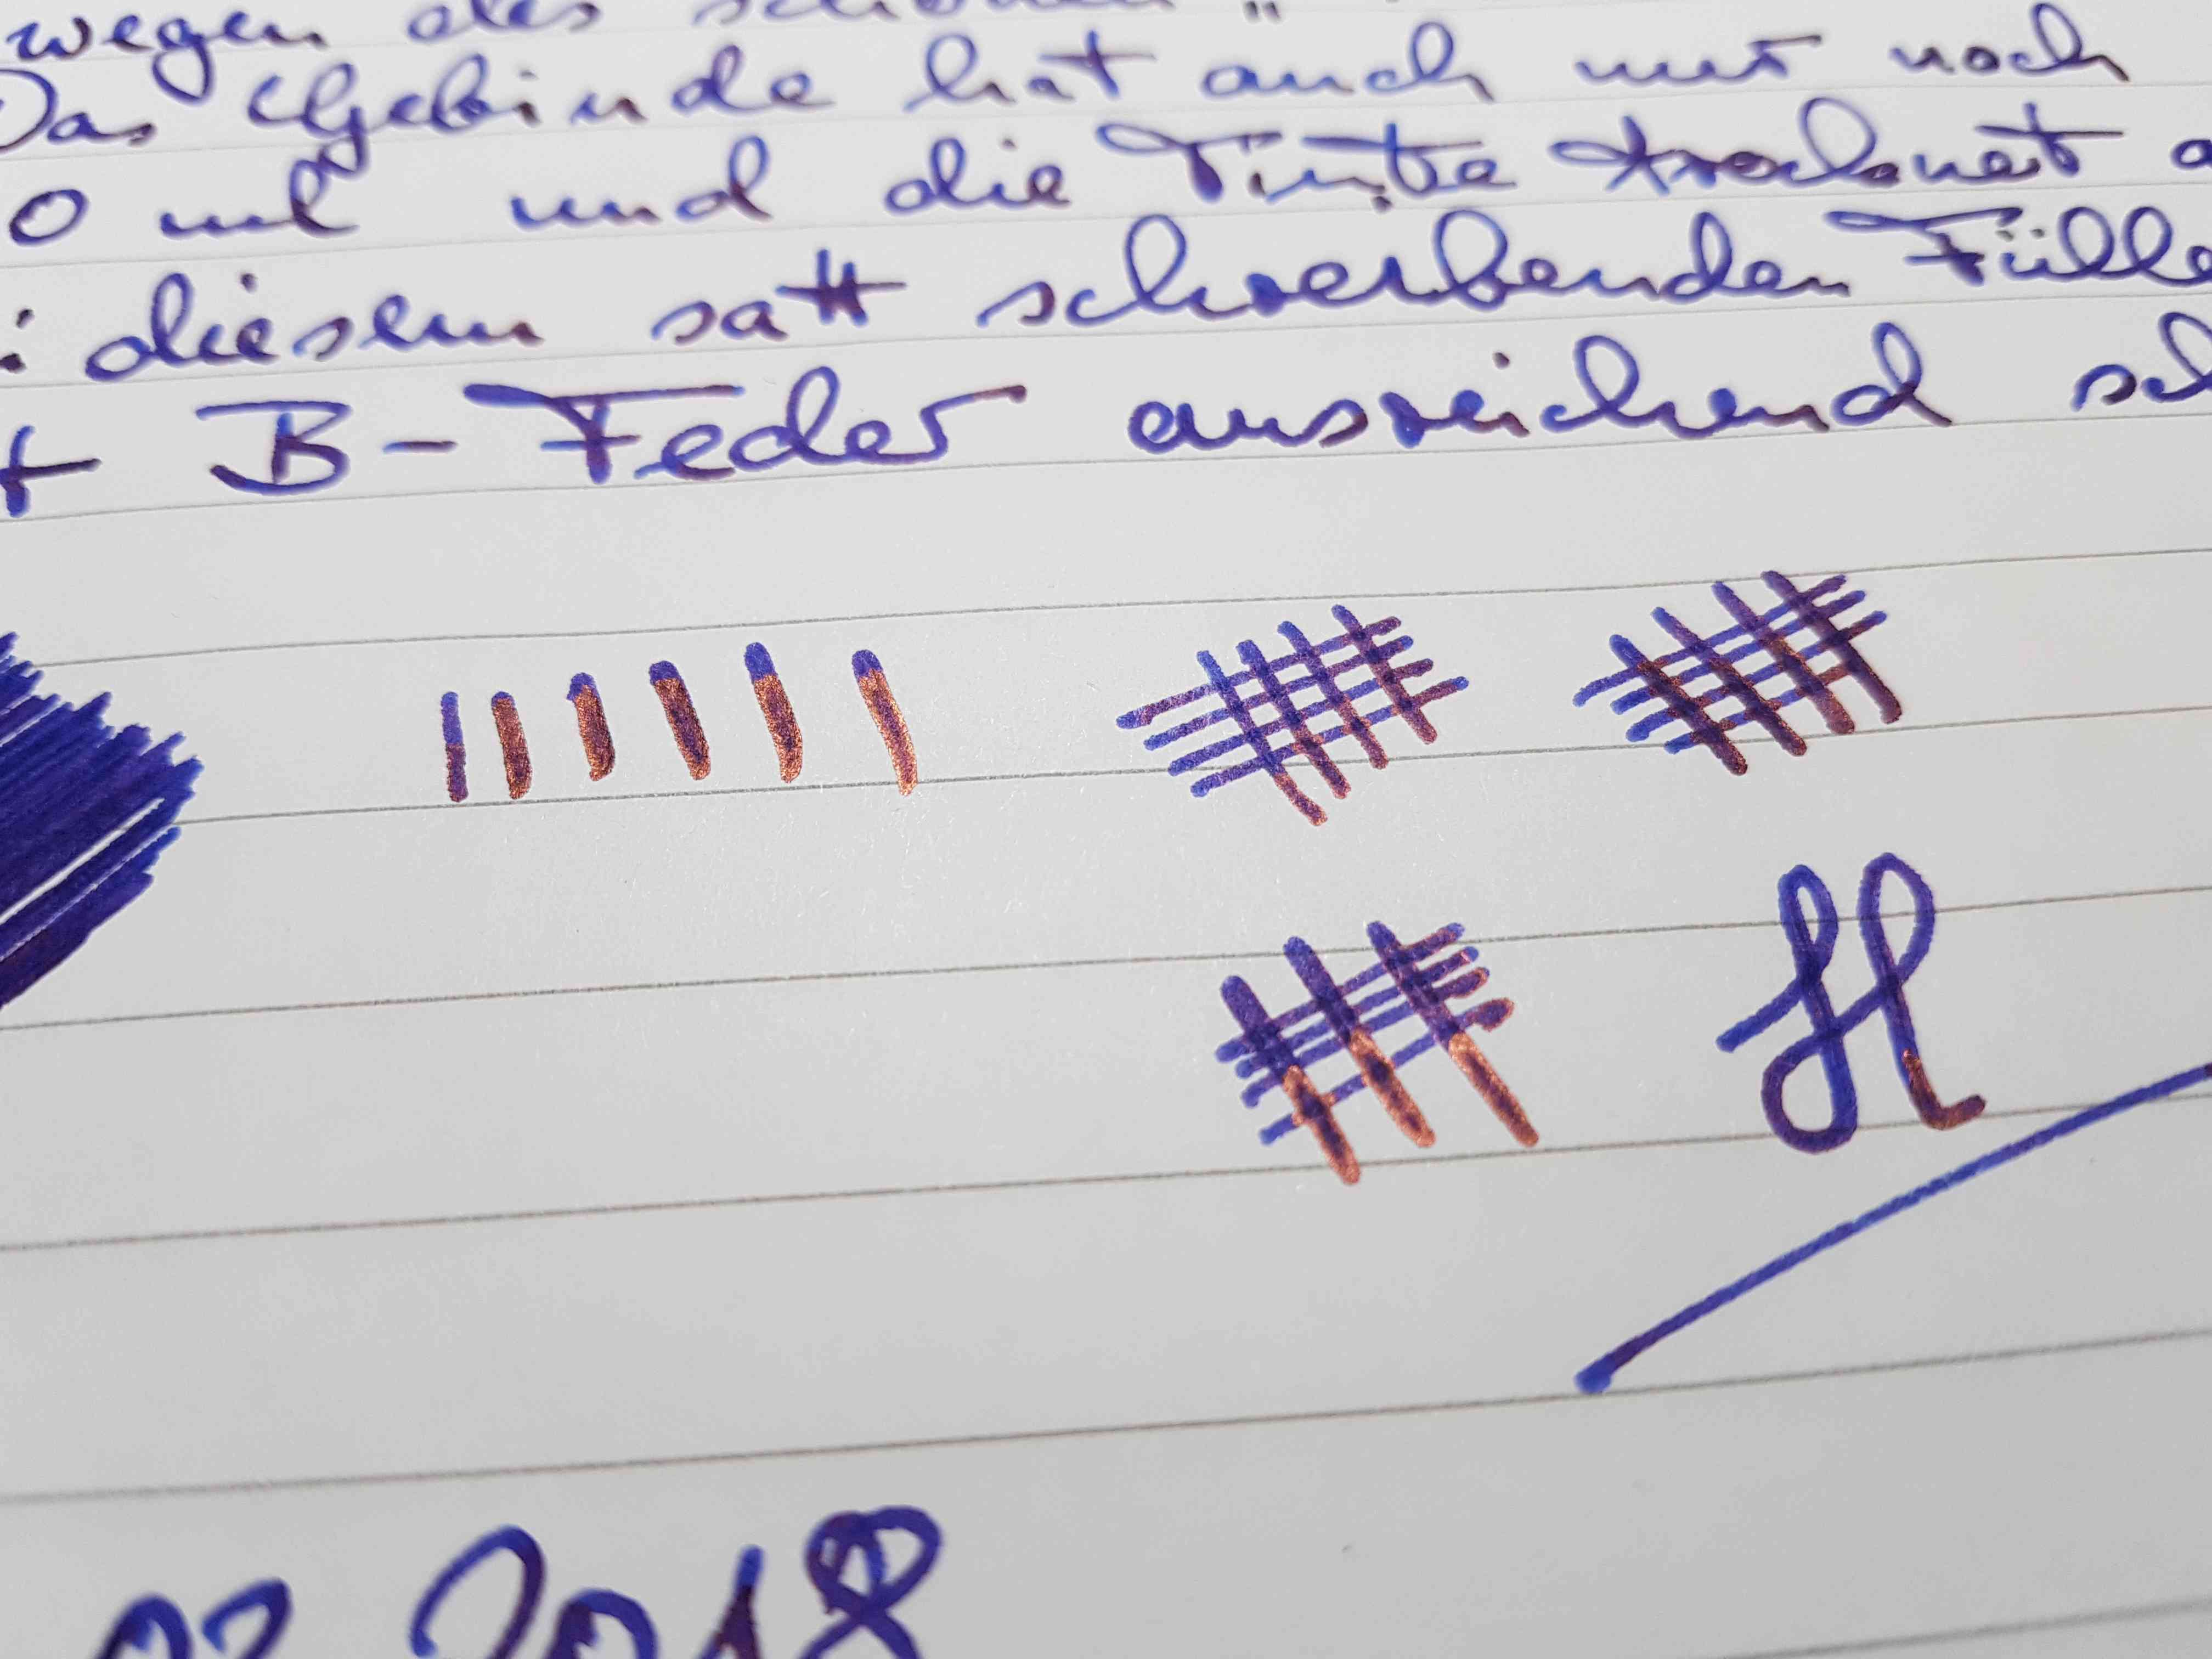 wegen des schönen "
Das Gebinde hat auch nur noch
0 ml und die Tinte trocknet a
i diesem satt schreibenden Fülle
t B-Feder ausreichend sch
H
02.2018